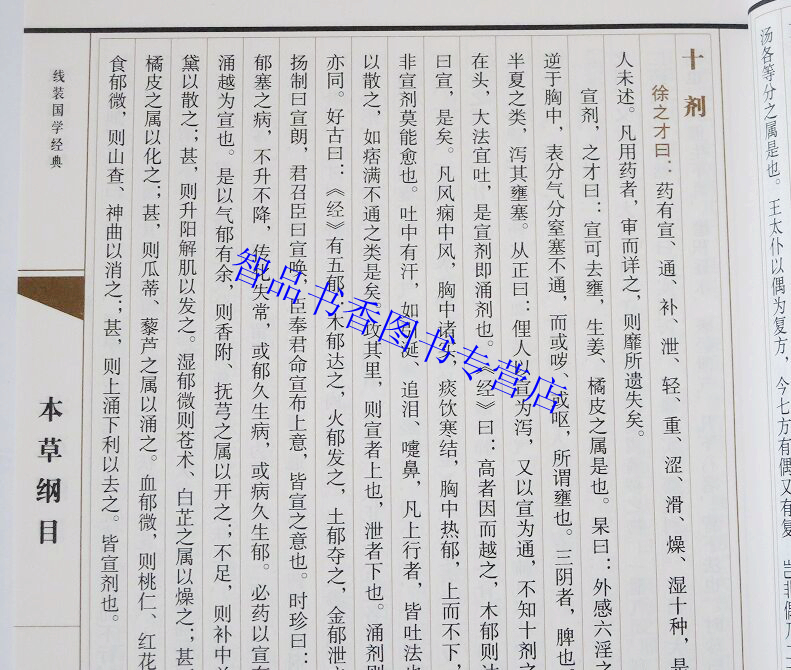 汤各等分之属是也。王太仆以偶为复方，今七方有偶又有复，岂非偶乃二
十剂
徐之才曰：药有宣、通、补、泄、轻、重、涩、滑、燥、湿十种，是
人未述。凡用药者，审而详之，则靡所遗失矣。
宣剂，之才曰：宣可去壅，生姜、橘皮之属是也。杲曰：外感六淫之
逆于胸中，表分气分窒塞不通，而或哕、或呕，所谓壅也。三阴者，脾也
半夏之类，泻其壅塞。从正曰：俚人以宣为泻，又以宣为通，不知十剂之
在头，大法宜吐，是宣剂即涌剂也。《经》曰：高者因而越之，木郁则达
曰宣，是矣。凡风痫中风，胸中诸，痰饮寒结，胸中热郁，上而不下，
非宣剂莫能愈也。吐中有汗，如涎、追泪、嚏鼻，凡上行者，皆吐法也
以散之，如痞满不通之类是矣。攻其里，则宣者上也，泄者下也。涌剂则
亦同。好古曰：《经》有五郁，木郁达之，火郁发之，土郁夺之，金郁泄之
扬制曰宣朗，君召臣曰宣唤，臣奉君命宣布上意，皆宣之意也。时珍曰：
郁塞之病，不升不降，传化失常，或郁久生病，或病久生郁。必药以宣布
涌越为宣也。是以气郁有余，则香附、抚芎之属以开之；不足，则补中
黛以散之；甚，则升阳解肌以发之。湿郁微则苍术、白芷之属以燥之；甚
橘皮之属以化之；甚，则瓜蒂、藜芦之属以涌之。血郁微，则桃仁、红花
食郁微，则山查、神曲以消之；甚，则上涌下利以去之。皆宣剂也。
线装国学经典
本草纲目
智品书香图书专营店